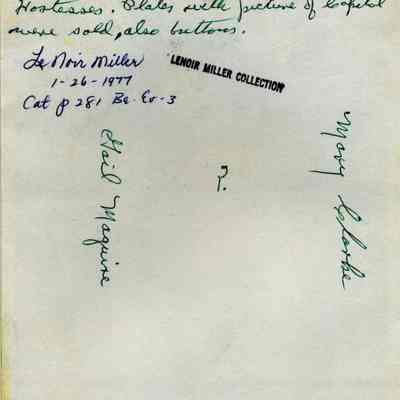 Hostesses. Plates with picture of Capitol
were sold, also buttons.
LeNoir Miller
1-26-1977
Cat p 281 Be. Ev-3
LENOIR MILLER COLLECTION
Gail Maguire
?
Mary Clarke